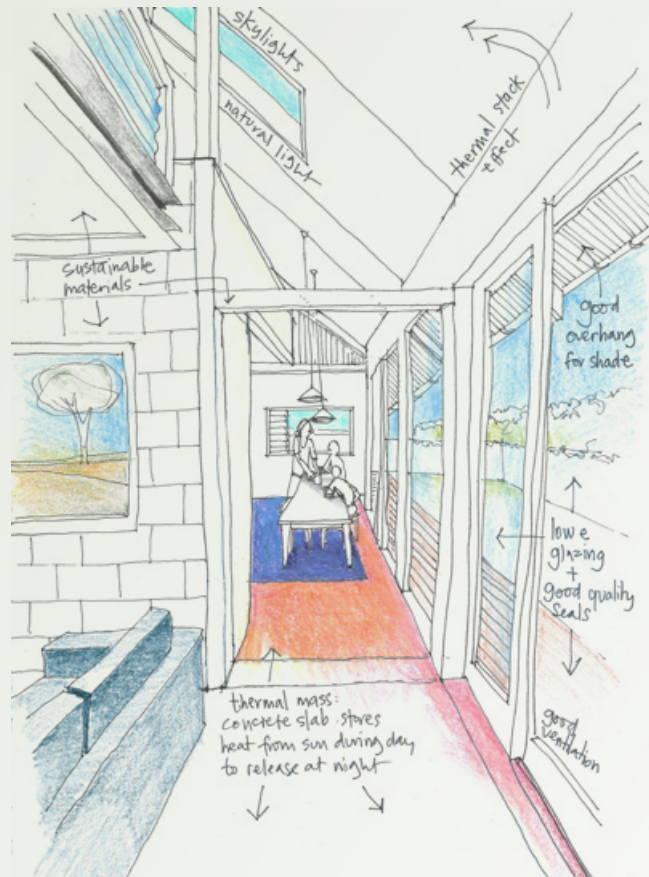 skylights
natural light
thermal stack
effect
sustainable
materials
good
overhang
for shade
low e
glazing
+
good quality
seals
good
ventilation
thermal mass:
concrete slab stores
heat from sun during day
to release at night